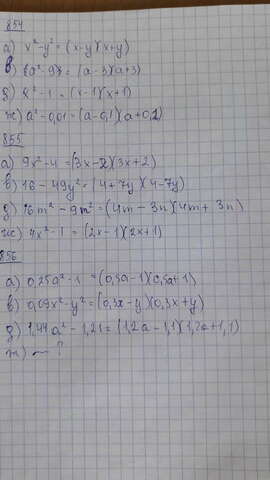 854
а) x²-y² = (x-y)(x+y)
в) (a²-9) = (a-3)(a+3)
д) x²-1 = (x-1)(x+1)
ж) a²-0,01 = (a-0,1)(a+0,1)
855
а) 9x²-4 = (3x-2)(3x+2)
в) 16-49y² = (4+7y)(4-7y)
д) 16m²-9n² = (4m-3n)(4m+3n)
ж) 4x²-1 = (2x-1)(2x+1)
856
а) 0,25a²-1 = (0,5a-1)(0,5a+1)
в) 0,09x²-y² = (0,3x-y)(0,3x+y)
д) 1,44a²-1,21 = (1,2a-1,1)(1,2a+1,1)
ж) — ?